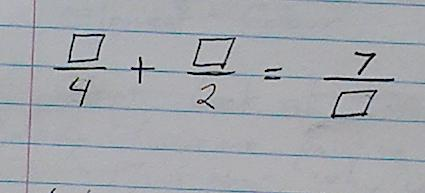 □/4 + □/2 = 7/□